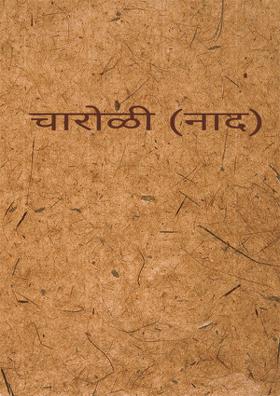 चारोळी (नाद)